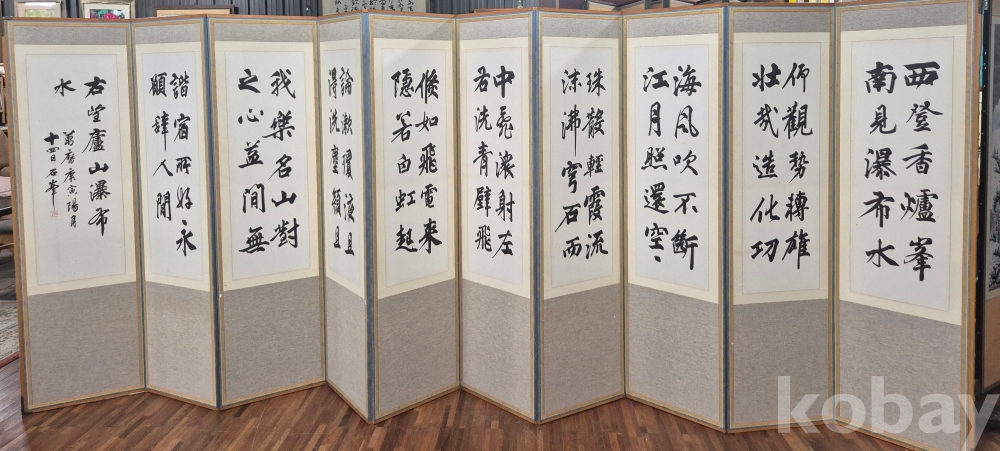 西登香爐峯
南見瀑布水
仰觀勢轉雄
壯哉造化功
海風吹不斷
江月照還空〻
珠散輕霞流
沫沸穹石而
中亂潨射左
右洗青壁飛
倏如飛電來
隱若白虹起
論漱瓊液且
得洗塵顏且
我樂名山對
之心益閒無
諧宿所好永
願辭人間
右望廬山瀑布
水
萬曆庚寅陽月
十四日石峯
kobay